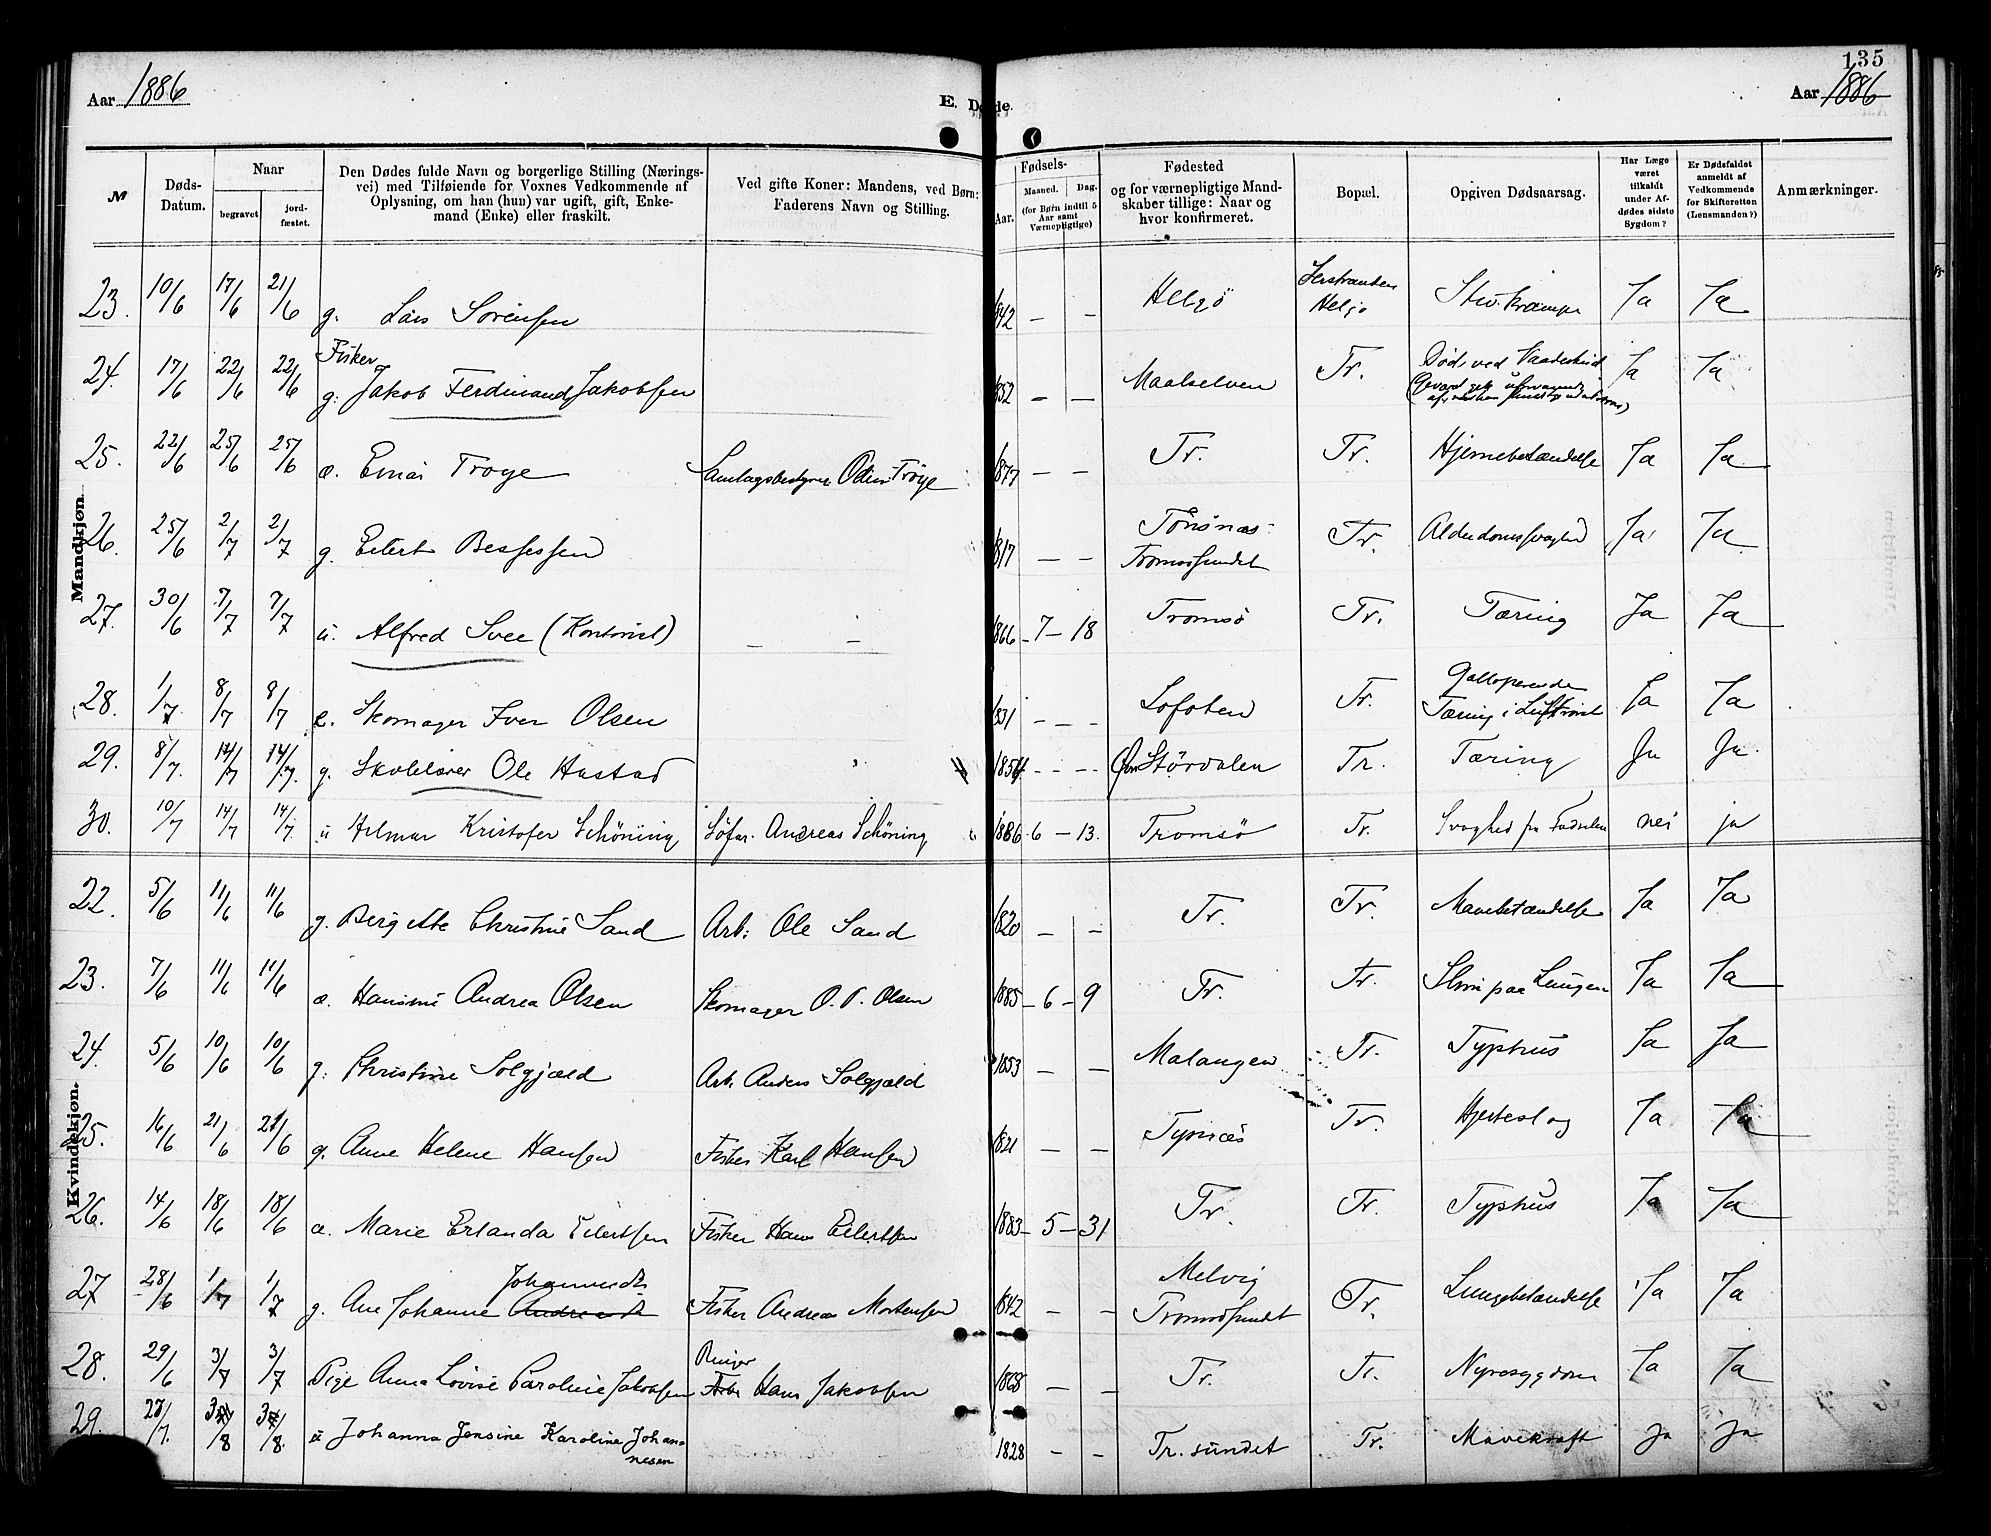 135
Aar 1886
E. Døde.
Aar 1886
№
Døds-Datum.
Naar
begravet
jordfæstet.
Den Dødes fulde Navn og borgerlige Stilling (Næringsvei) med Tilføiende for Voxnes Vedkommende af Oplysning, om han (hun) var ugift, gift, Enkemand (Enke) eller fraskilt.
Ved gifte Koner: Mandens, ved Børn: Faderens Navn og Stilling.
Fødsels-
Aar.
Maaned.
Dag.
(for Børn indtil 5 Aar samt Værnepligtige)
Fødested
og for værnepligtige Mandskaber tillige: Naar og hvor konfirmeret.
Bopæl.
Opgiven Dødsaarsag.
Har Læge været tilkaldt under Afdødes sidste Sygdom?
Er Dødsfaldet anmeldt af Vedkommende for Skifteretten (Lensmanden?)
Anmærkninger.
Mandkjøn.
23. 10/6 17/6 21/6 g. Lars Sørensen 1842 — — Helgø Helgø Ja Ja
24. 17/6 22/6 22/6 Fisker
g. Jakob Ferdinand Jakobsen 1852 — — Maalselven Tr. Død ved Vaadeskud Ja Ja
25. 22/6 25/6 25/6 æ. Einar Trøye Samlagsbestyrer Trøye 1877 — — Tr. Tr. Hjernebetændelse Ja Ja
26. 25/6 2/7 2/7 g. Eilert Bessesen 1817 — — Tønsnæs
Tromsøsundet Tr. Alderdomssvaghed Ja Ja
27. 30/6 7/7 7/7 u. Alfred Svee (Kontorist) — — 1866 — 7 — 18 Tromsø Tr. Tæring Ja Ja
28. 1/7 8/7 8/7 e. Skomager Iver Olsen 1831 — — — Lofoten Tr. Galloperende
Tæring i Luftrøret Ja Ja
29. 8/7 14/7 14/7 g. Skolelærer Ole Hastad 1854 — — — Størdalen Tr. Tæring Ja Ja
30. 10/7 14/7 14/7 u Hilmar Kristofer Schöning Søfar. Andreas Schöning 1886 6 — 13. Tromsø Tr. Svaghed fra Fødselen nei ja
Kvindekjøn.
22. 5/6 11/6 11/6 g. Bergitte Christine Sand Arb: Ole Sand 1820 — — Tr. Tr. Mavebetændelse Ja Ja
23. 7/6 11/6 11/6 æ. Hansine Andrea Olsen Skomager O. P. Olsen 1885 — 6 — 9 Tr. Tr. Slim paa Lungen Ja Ja
24. 5/6 10/6 10/6 g. Christine Solgjæld Arb. Anders Solgjæld 1853 — — Malangen Tr. Typhus Ja Ja
25. 16/6 21/6 21/6 g. Anne Helene Hansen Fisker Karl Hansen 1821 — — Tr. Hjerteslag Ja Ja
26. 14/6 18/6 18/6 æ. Marie Erlanda Eilertsen Fisker Hans Eilertsen 1883 — 5 — 31 Tr. Tr. Typhus Ja Ja
27 28/6 1/7 1/7 g. Ane Johanne Johannesdt. Fisker Andreas Mortensen 1842 — — Melvig
Tromsøsundet Tr. Lungebetændelse Ja Ja
28. 29/6 3/7 3/7 Pige Anna Lovise Caroline Jakobsen Ringer
Hans Jakobsen 1868 — — Tr. Tr. Nyresygdom Ja Ja
29. 27/7. 3/8 3/8. u Johanna Jensine Karoline Johannesen 1828 — — Tr. sundet Tr. Mavekræft Ja Ja